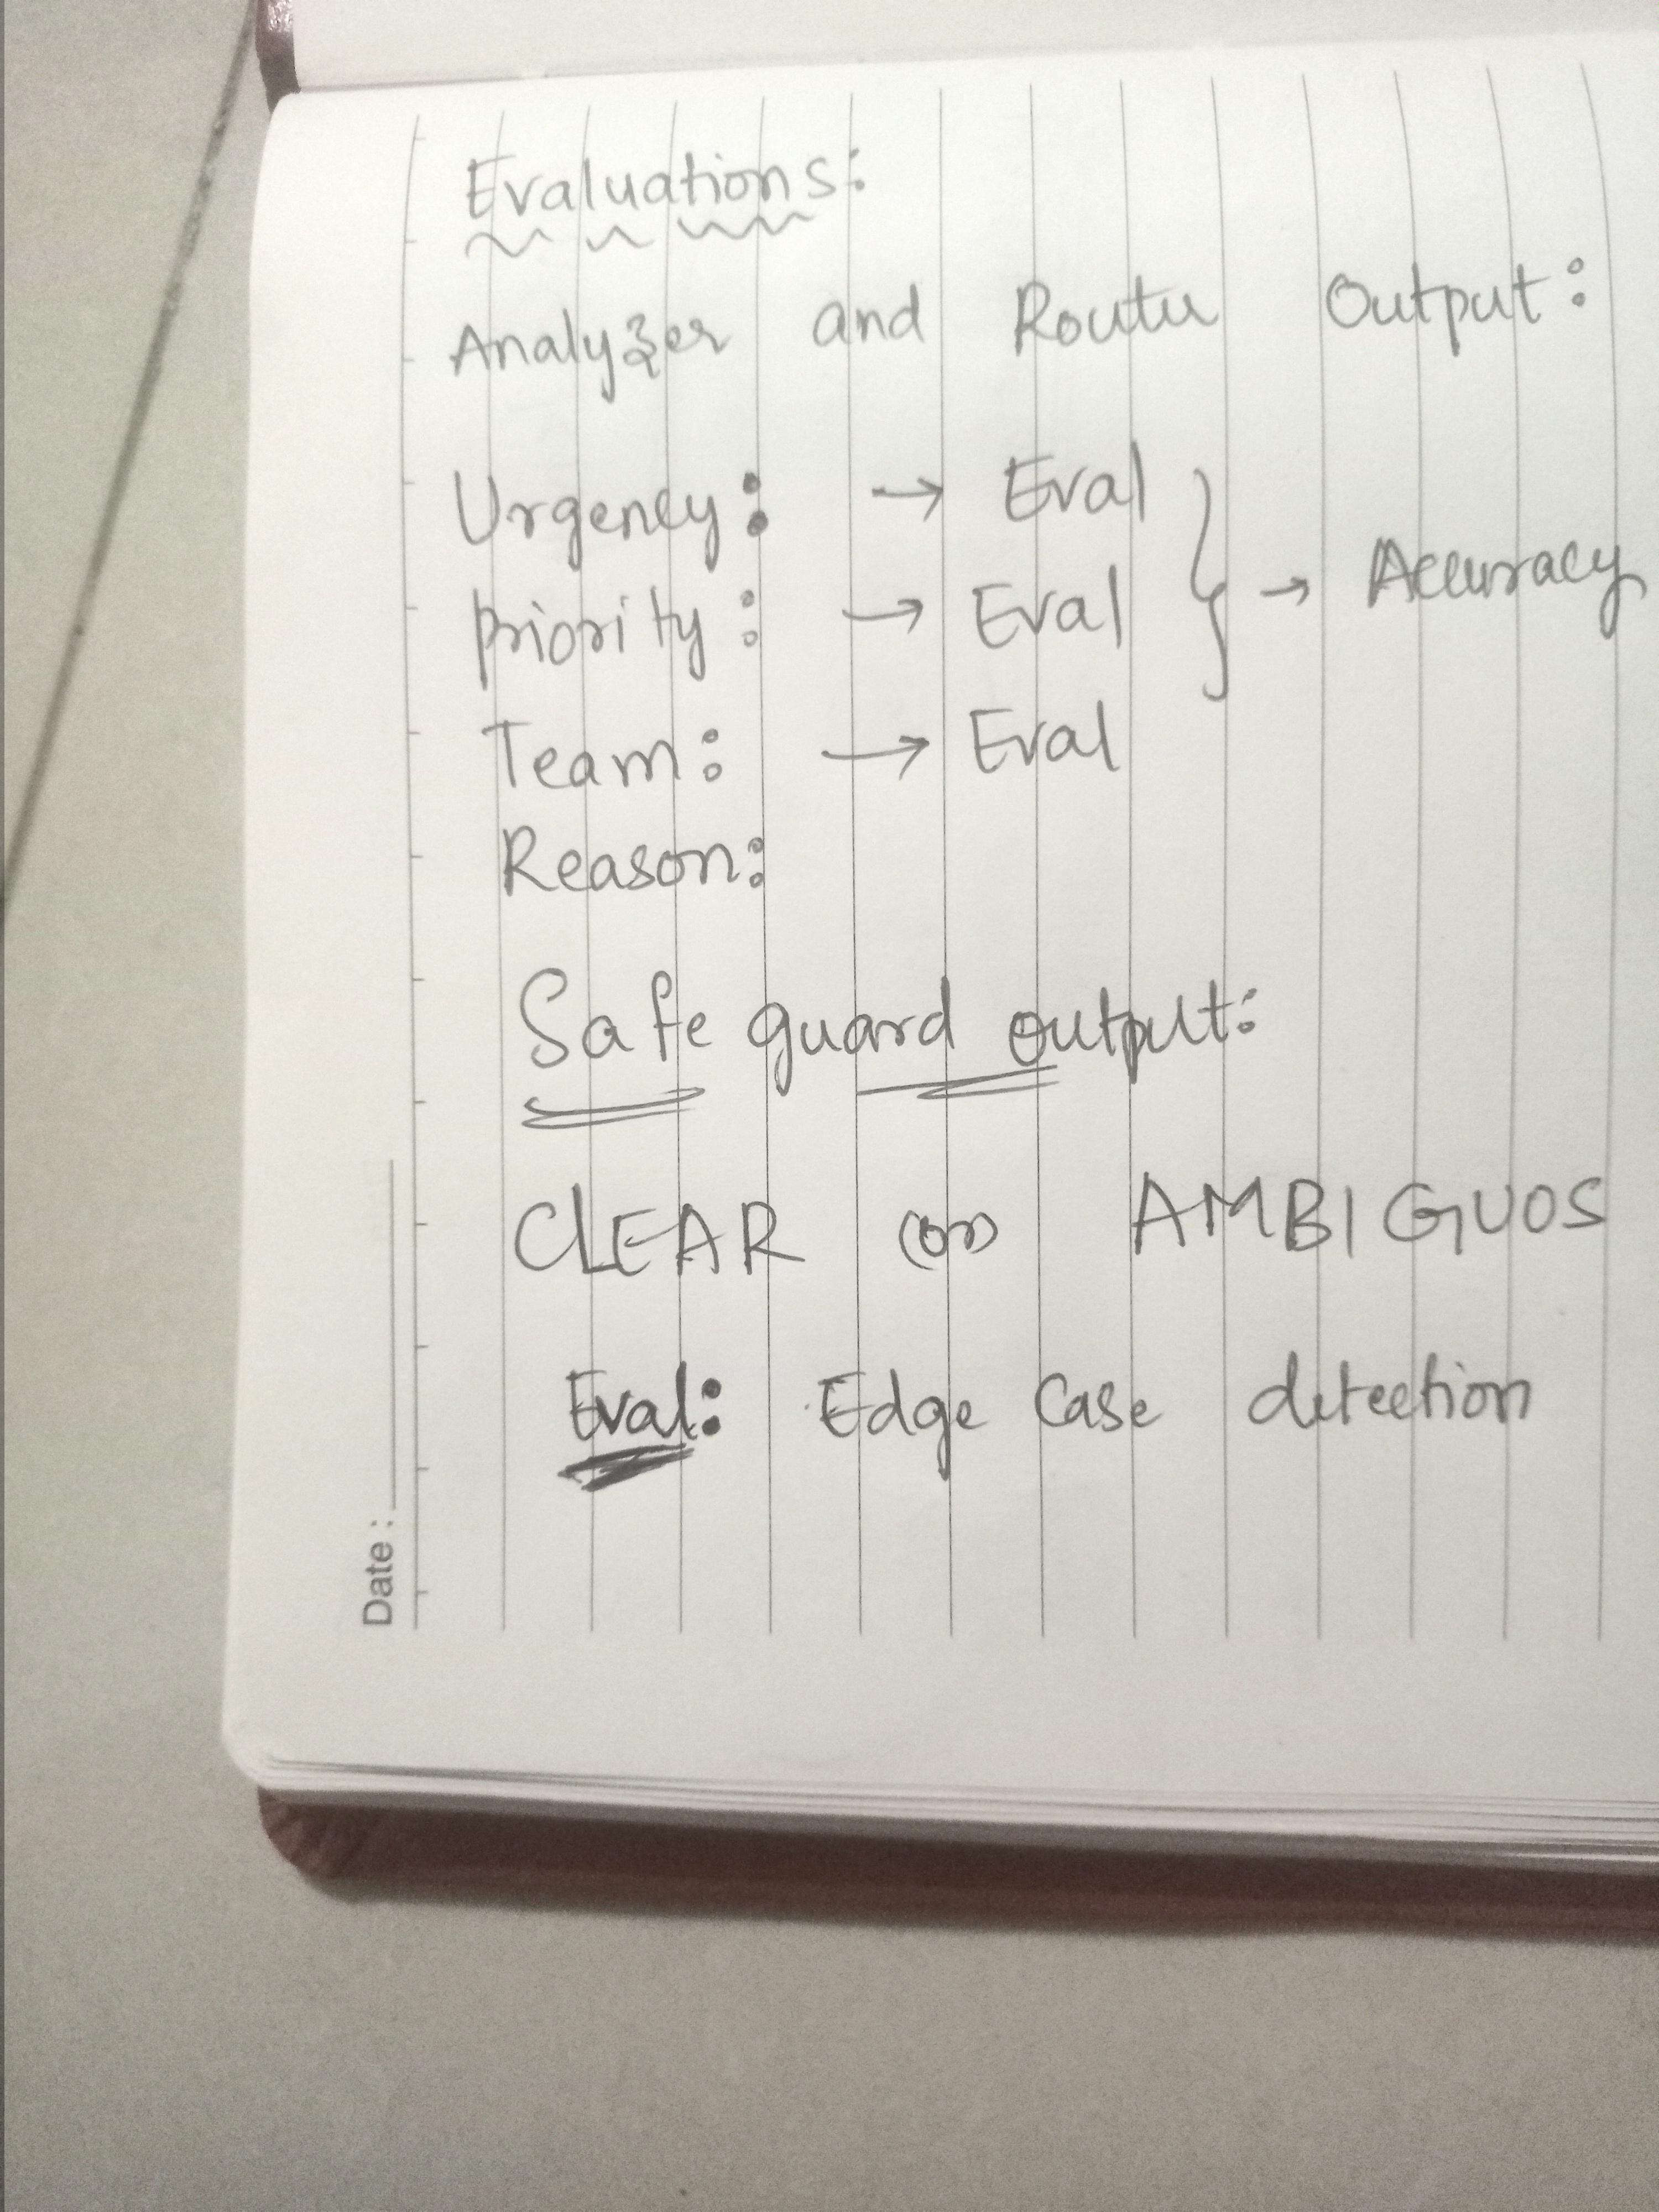 Evaluations:
Analyzer and Router Output:
Urgency: → Eval
priority: → Eval } → Accuracy
Team: → Eval
Reason:
Safe guard output:
CLEAR (or) AMBIGUOS
Eval: Edge Case detection
Date: